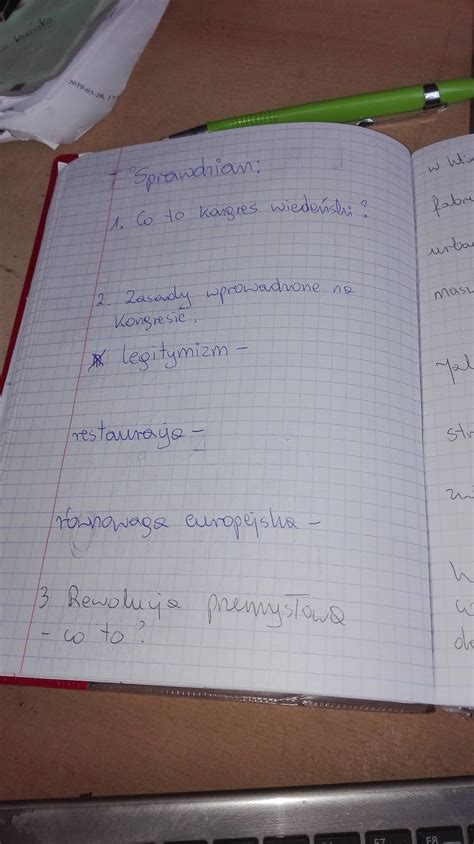 2019-03-28, 17
- Sprawdzian:
1. Co to kongres wiedeński?
2. Zasady wprowadzone na
kongresie:
legitymizm -
restauracja -
-
równowaga europejska -
3 Rewolucja przemysłowa
- co to?
w Wi
fabr
urba
masz
str
do
F7
F8